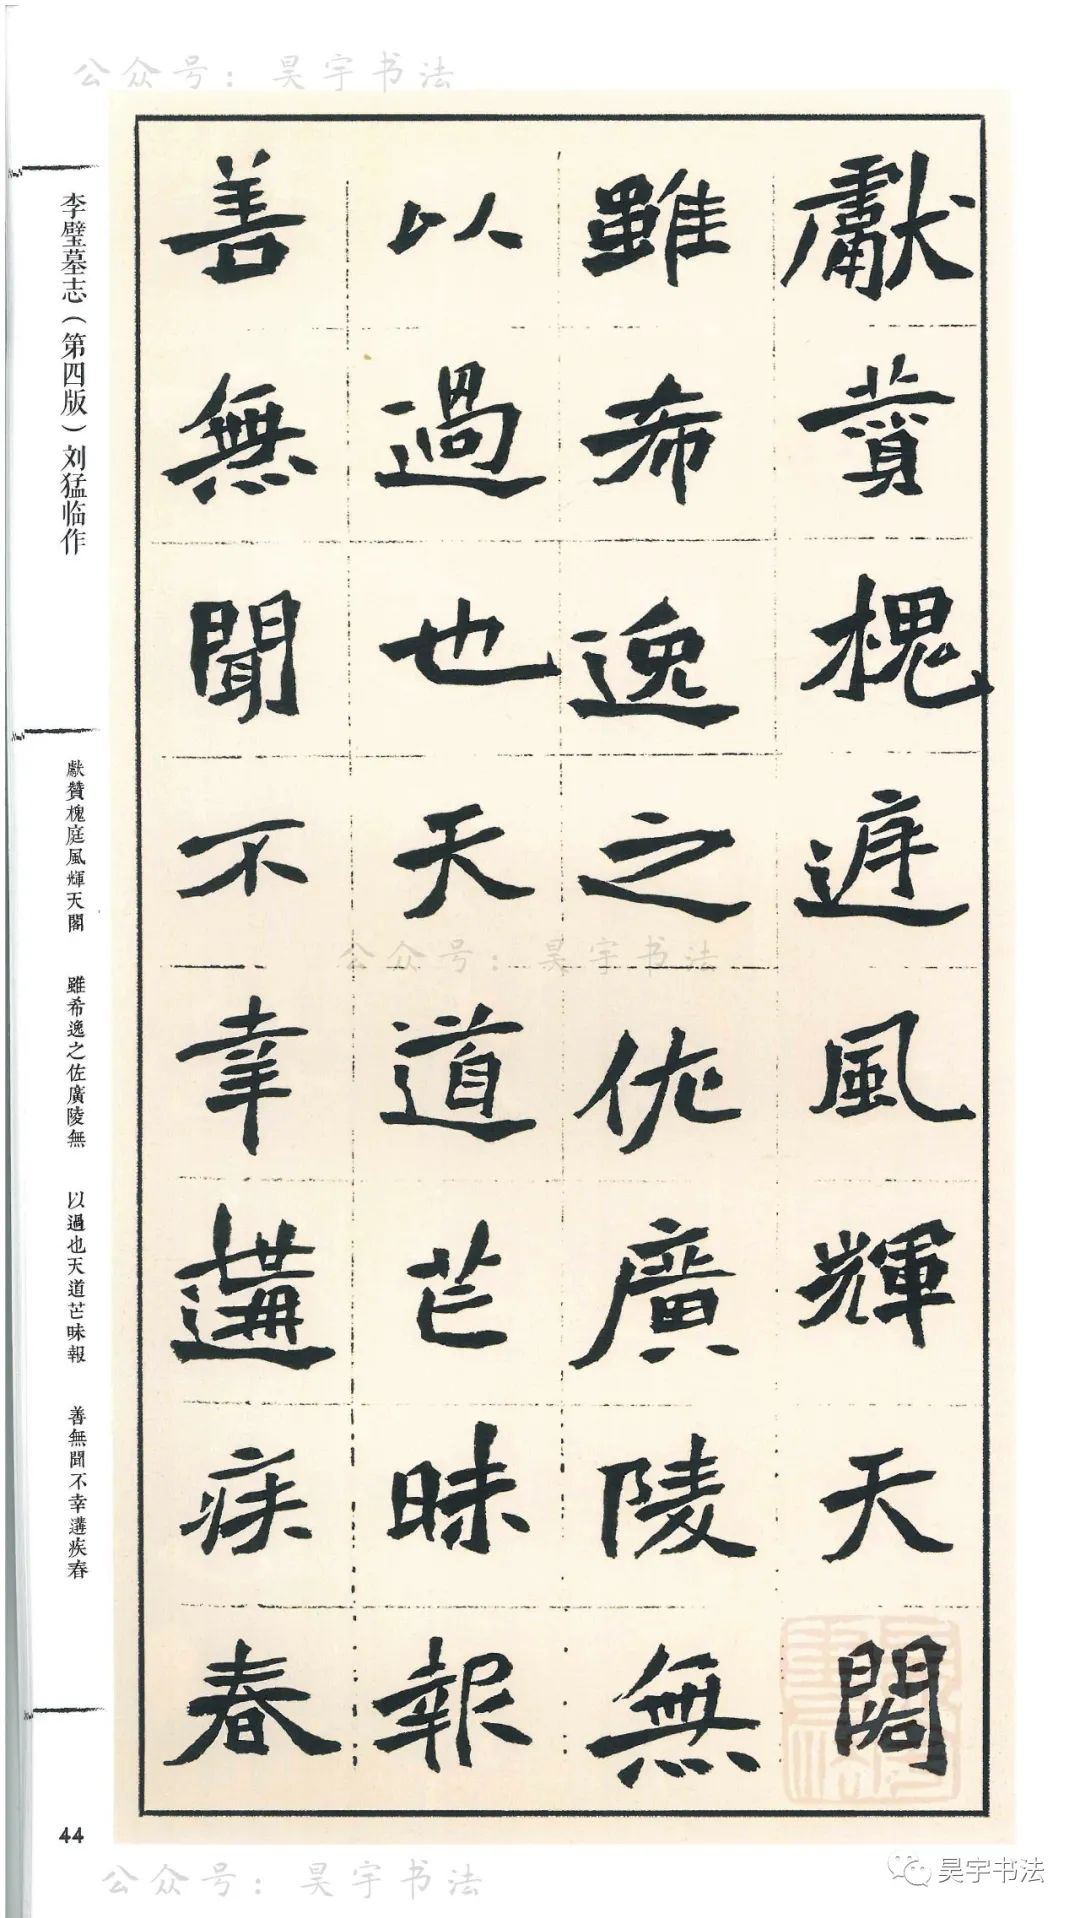 公众号：昊宇书法
李璧墓志（第四版）刘猛临作
獻贊槐庭風輝天閣
雖希逸之佐廣陵無
以過也天道芒昧報
善無聞不幸遘疾春
獻贊槐庭風輝天閣
雖希逸之佐廣陵無
以過也天道芒昧報
善無聞不幸遘疾春
公众号：昊宇书法
44
公众号：昊宇书法
昊宇书法